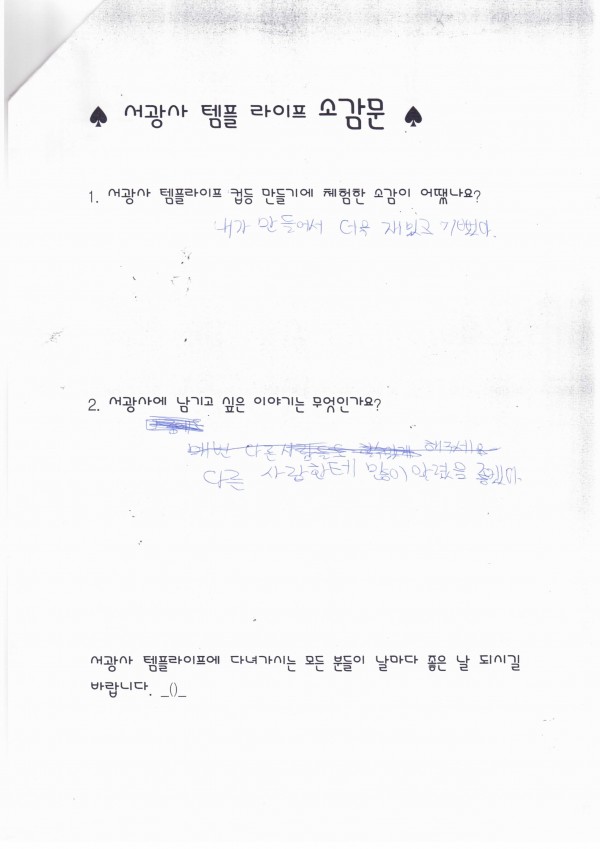 ♠ 서광사 템플 라이프 소감문 ♠
1. 서광사 템플라이프 컵등 만들기에 체험한 소감이 어땠나요?
내가 만들어서 더욱 재밌고 기뻤다.
2. 서광사에 남기고 싶은 이야기는 무엇인가요?
매번 다른사람들도 할수있게 해주세요
다른 사람한테 많이 알렸음 좋겠다
서광사 템플라이프에 다녀가시는 모든 분들이 날마다 좋은 날 되시길
바랍니다. _()_